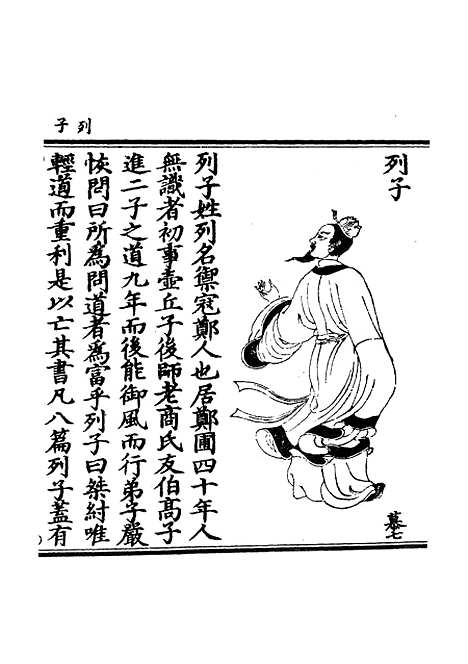 子列
列子
列子姓列名禦寇鄭人也居鄭圃四十年人
無識者初事壺丘子後師老商氏友伯高子
進二子之道九年而後能御風而行弟子嚴
恢問曰所爲問道者爲富乎列子曰桀紂唯
輕道而重利是以亡其書凡八篇列子蓋有